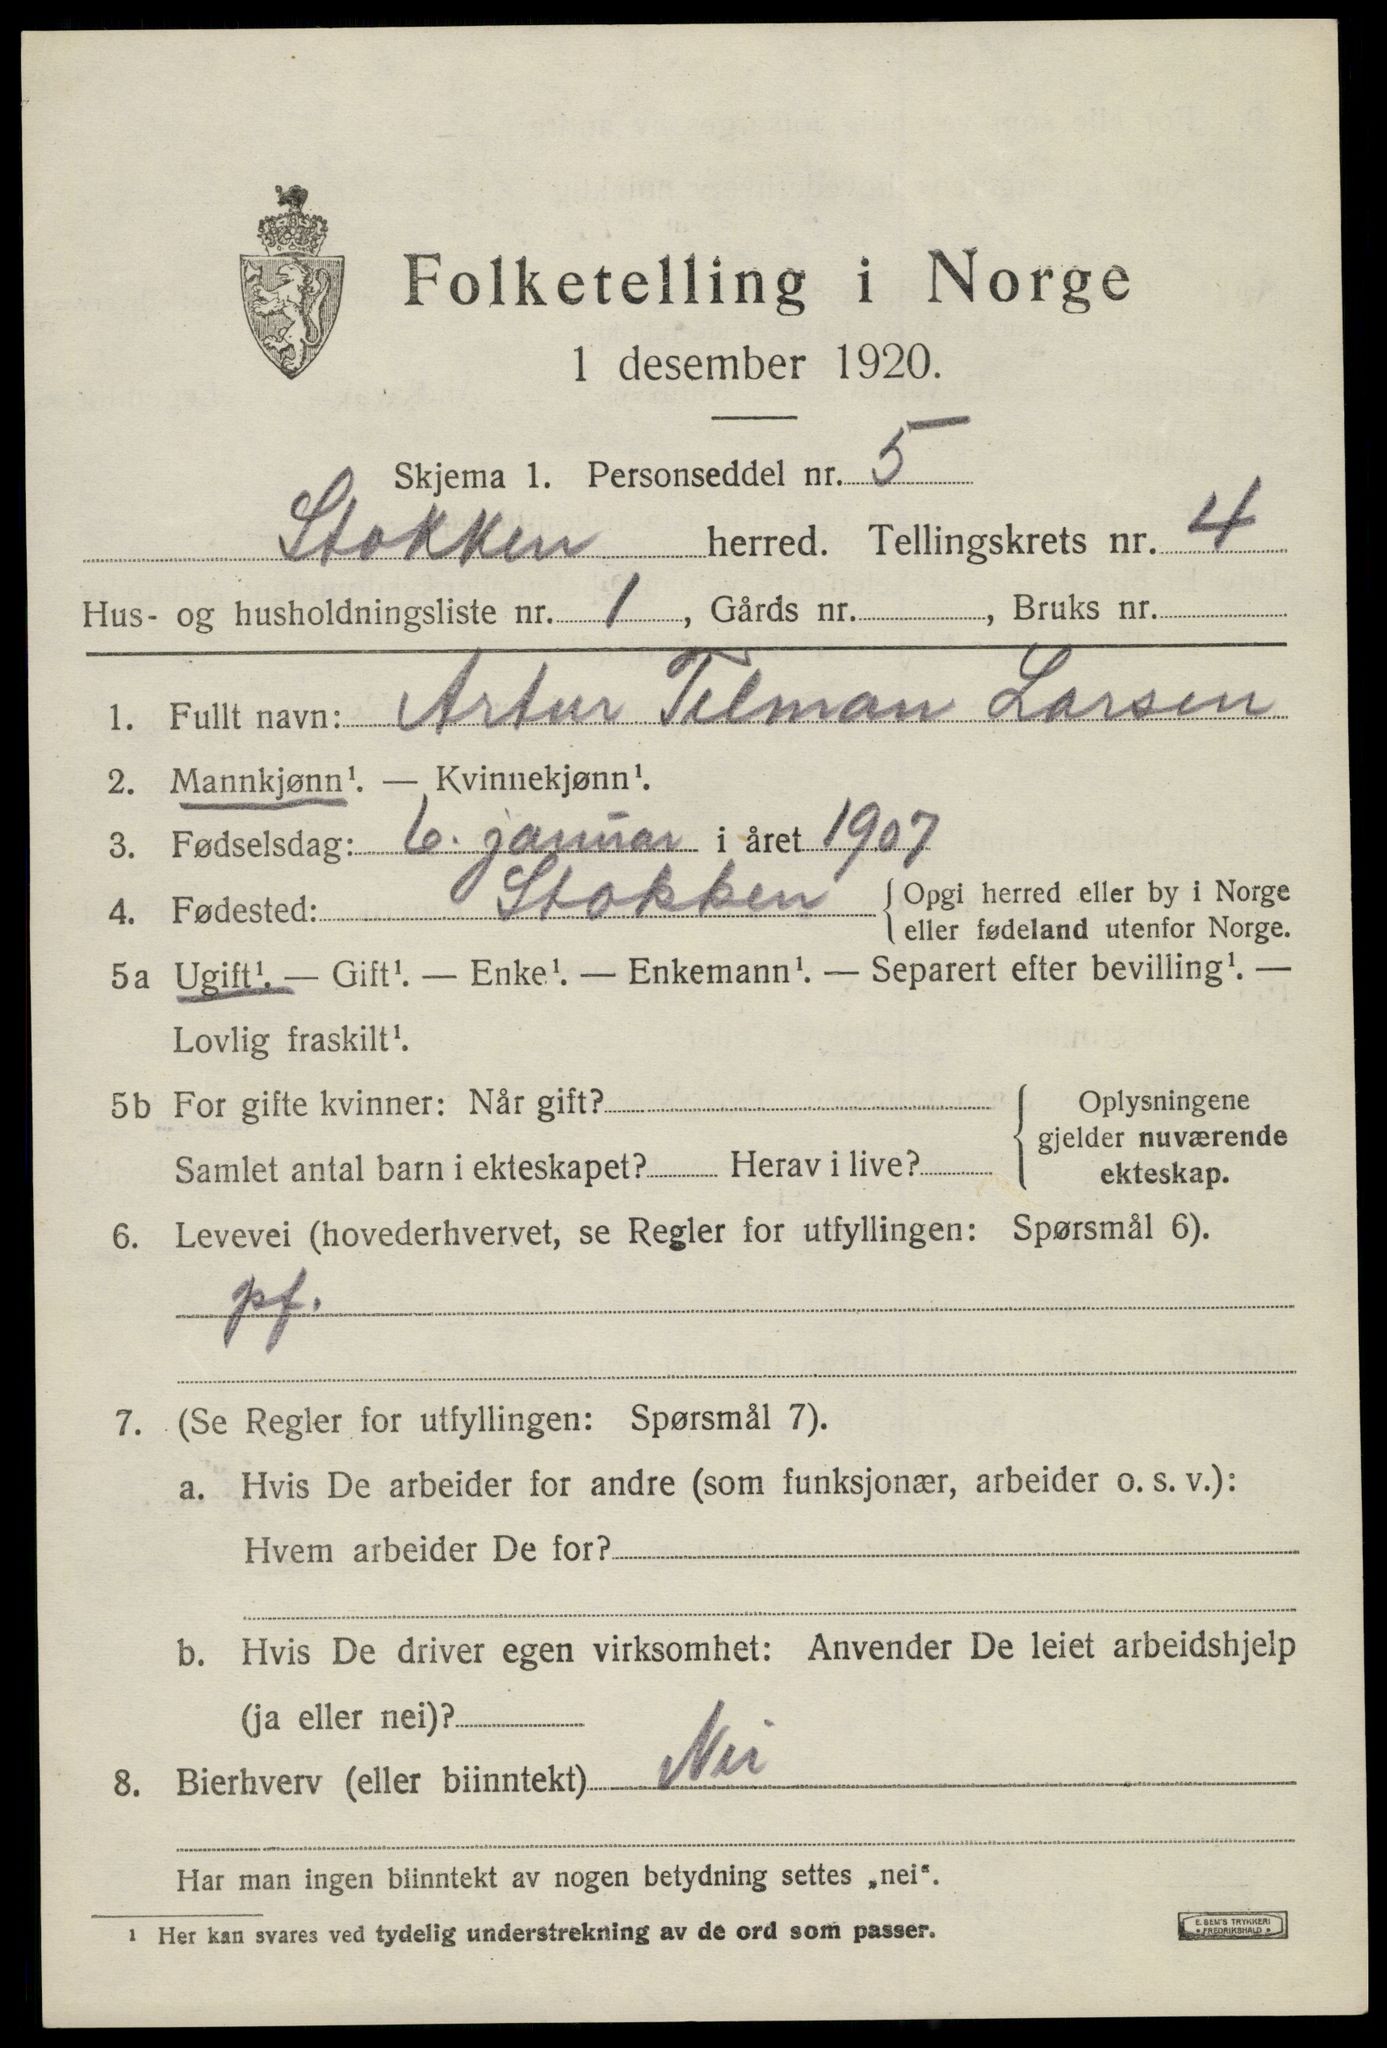 Folketelling i Norge
1 desember 1920.
Skjema 1. Personseddel nr. 5
Stokken herred. Tellingskrets nr. 4
Hus- og husholdningsliste nr. 1, Gårds nr. , Bruks nr.
1. Fullt navn: Artur Tilman Larsen
2. Mannkjønn¹. — Kvinnekjønn¹.
3. Fødselsdag: 6. januar i året 1907
4. Fødested: Stokken { Opgi herred eller by i Norge
eller fødeland utenfor Norge.
5a Ugift¹. — Gift¹. — Enke¹. — Enkemann¹. — Separert efter bevilling¹. —
Lovlig fraskilt¹.
5b For gifte kvinner: Når gift?
Samlet antal barn i ekteskapet? Herav i live?
{ Oplysningene
gjelder nuværende
ekteskap.
6. Levevei (hovederhvervet, se Regler for utfyllingen: Spørsmål 6).
pf.
7. (Se Regler for utfyllingen: Spørsmål 7).
a. Hvis De arbeider for andre (som funksjonær, arbeider o. s. v.):
Hvem arbeider De for?
b. Hvis De driver egen virksomhet: Anvender De leiet arbeidshjelp
(ja eller nei)?
8. Bierhverv (eller biinntekt) Nei
Har man ingen biinntekt av nogen betydning settes „nei“.
¹ Her kan svares ved tydelig understrekning av de ord som passer.
E. SEM'S TRYKKERI
• FREDRIKSHALD •